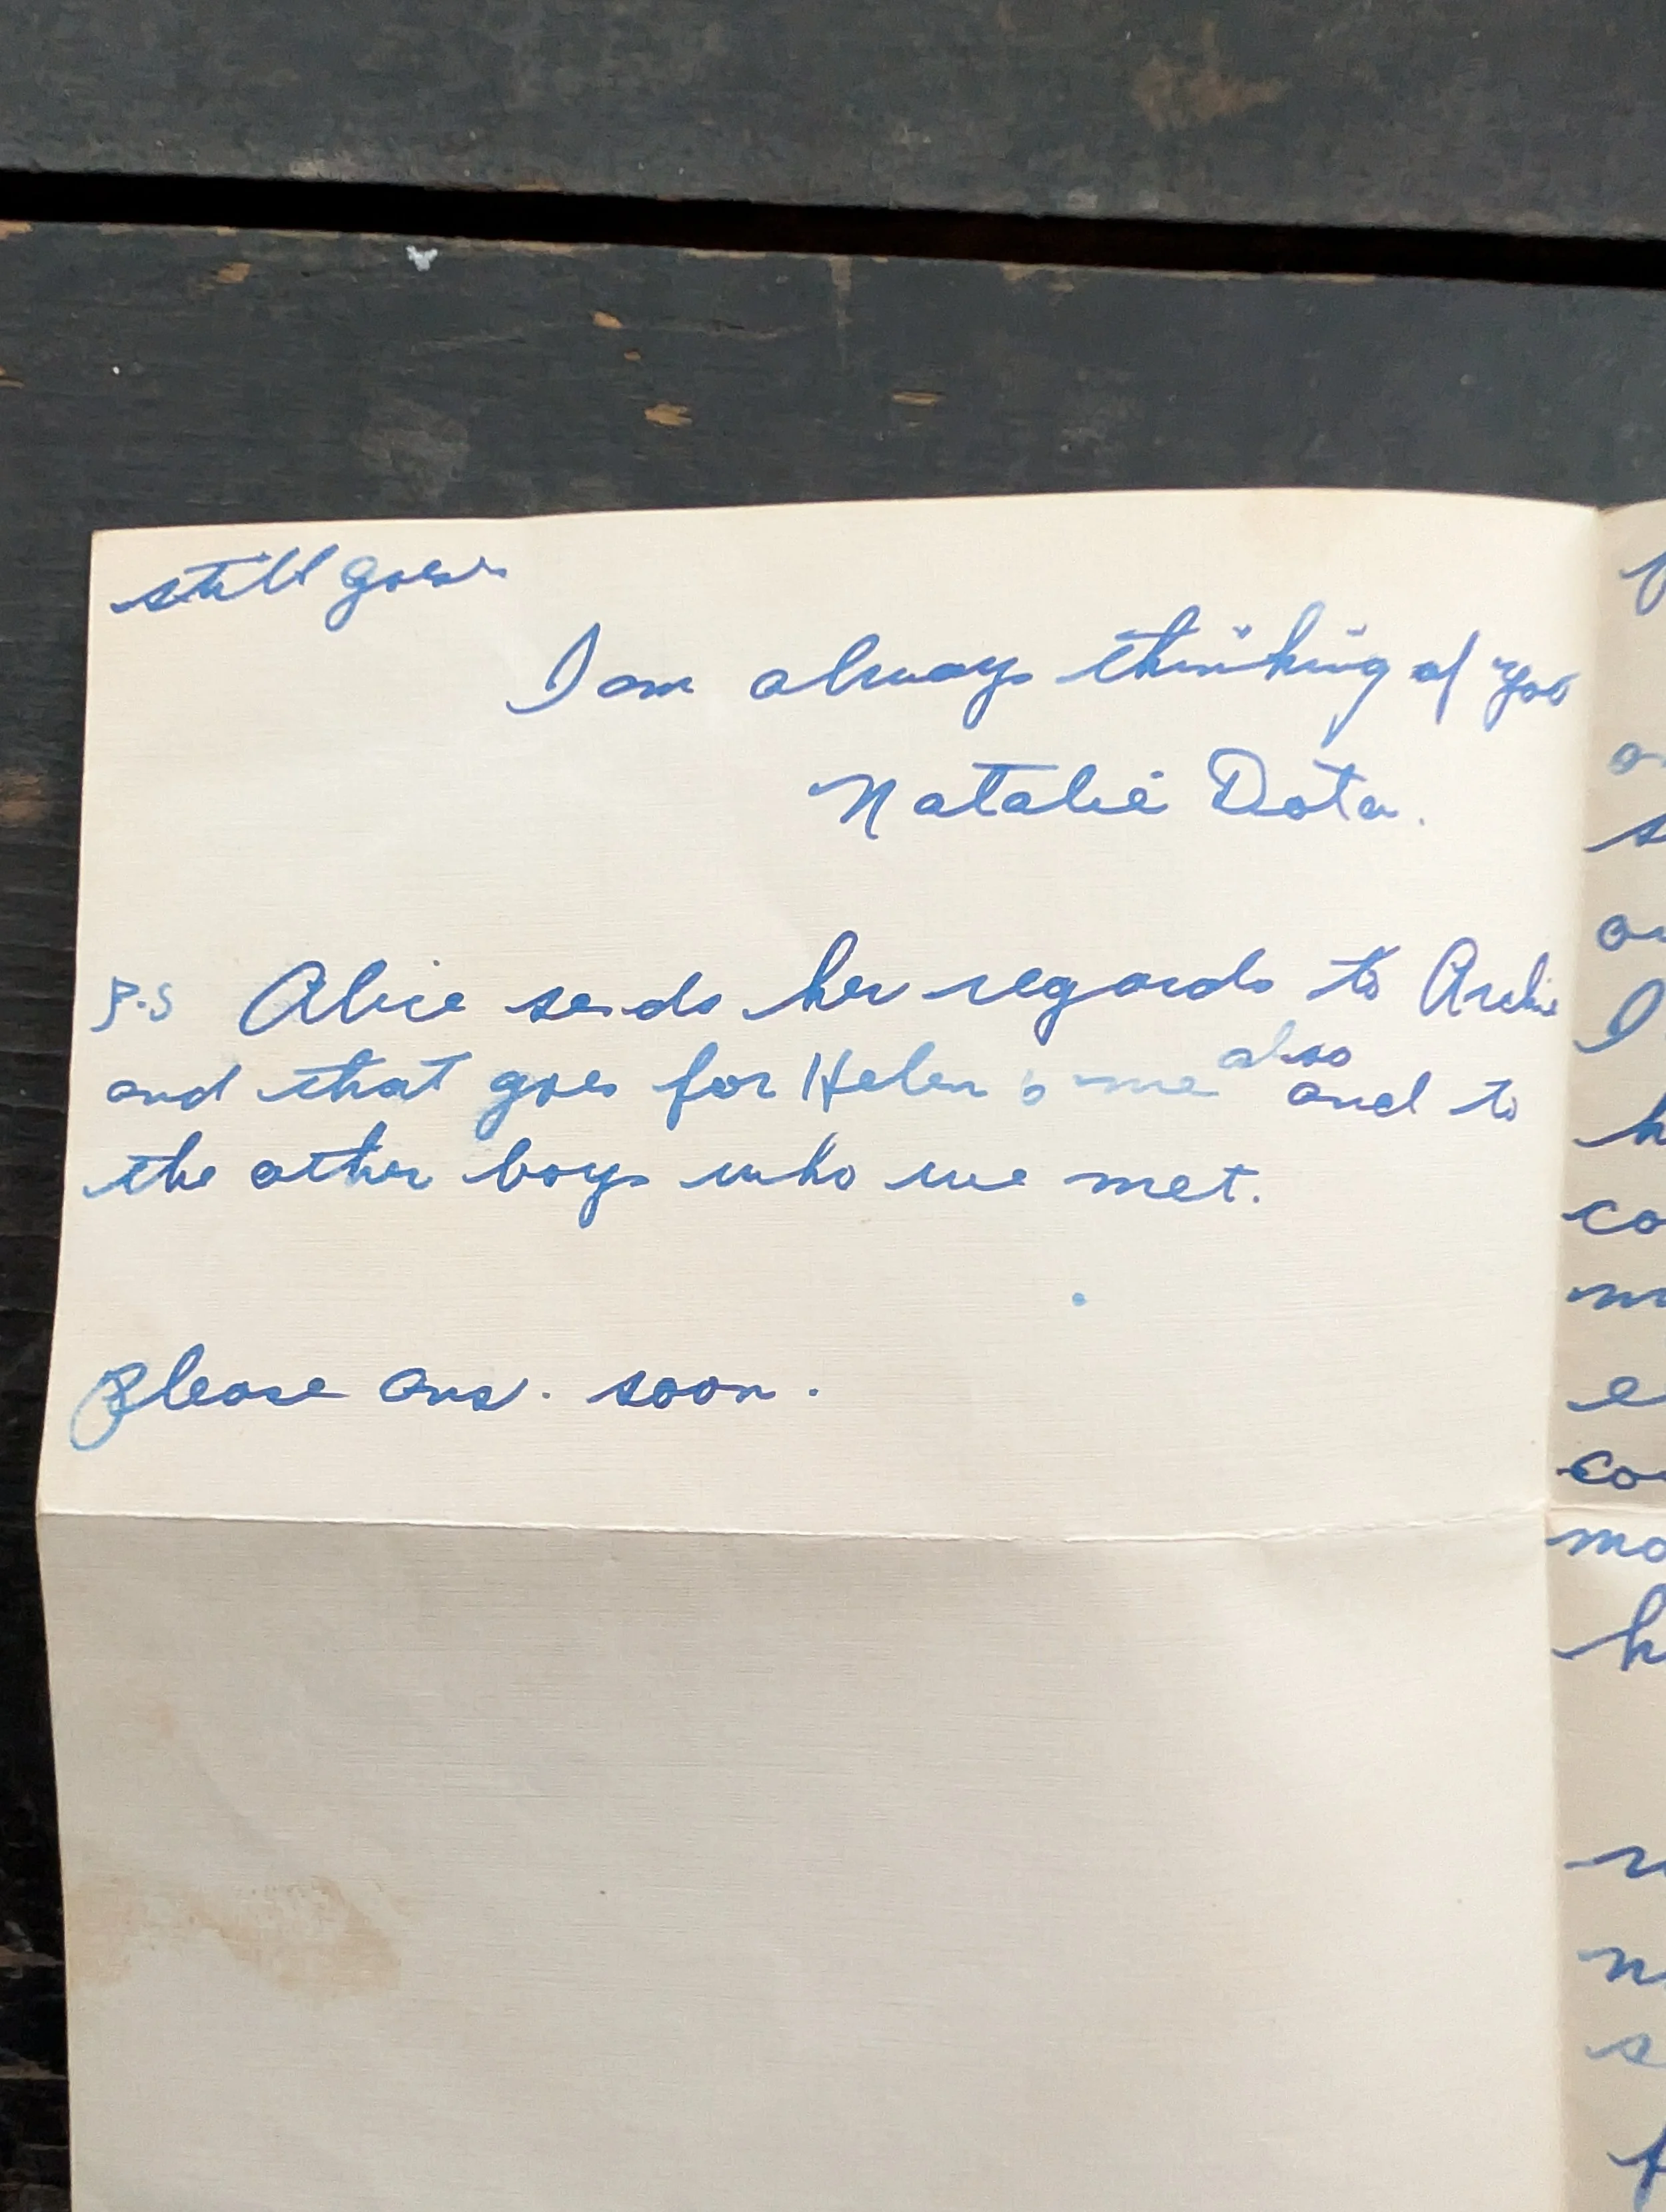 still goes
I am always thinking of you
Natalie Dota.
P.S Alice sends her regards to Archie
and that goes for Helen & me also and to
the other boys who we met.
Please ans. soon.